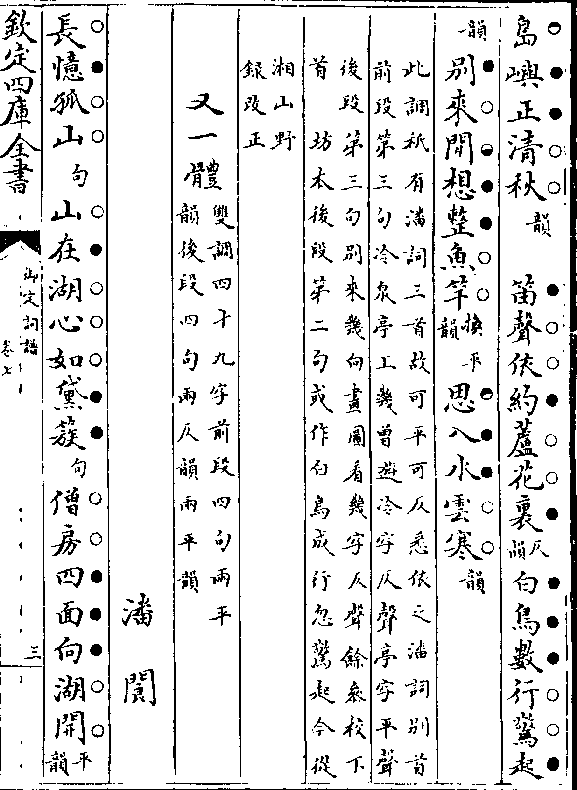 島嶼正清秋韻　笛聲依約蘆花裏仄韻白鳥數行驚起
韻別來閒想整魚竿換平韻思入水雲寒韻
此調祇有潘詞三首故可平可仄悉依之潘詞別首
前段第三句冷泉亭上幾曾遊冷字仄聲亭字平聲
後段第三句別來幾向畫圖看幾字仄聲餘參校下
首　坊本後段第二句或作白鳥成行忽驚起今從
湘山野
録改正
又一體雙調四十九字前段四句兩平
韻後段四句兩仄韻兩平韻
潘閬
長憶孤山句山在湖心如黛簇句僧房四面向湖開平韻
欽定四庫全書
御定詞譜
卷七
三